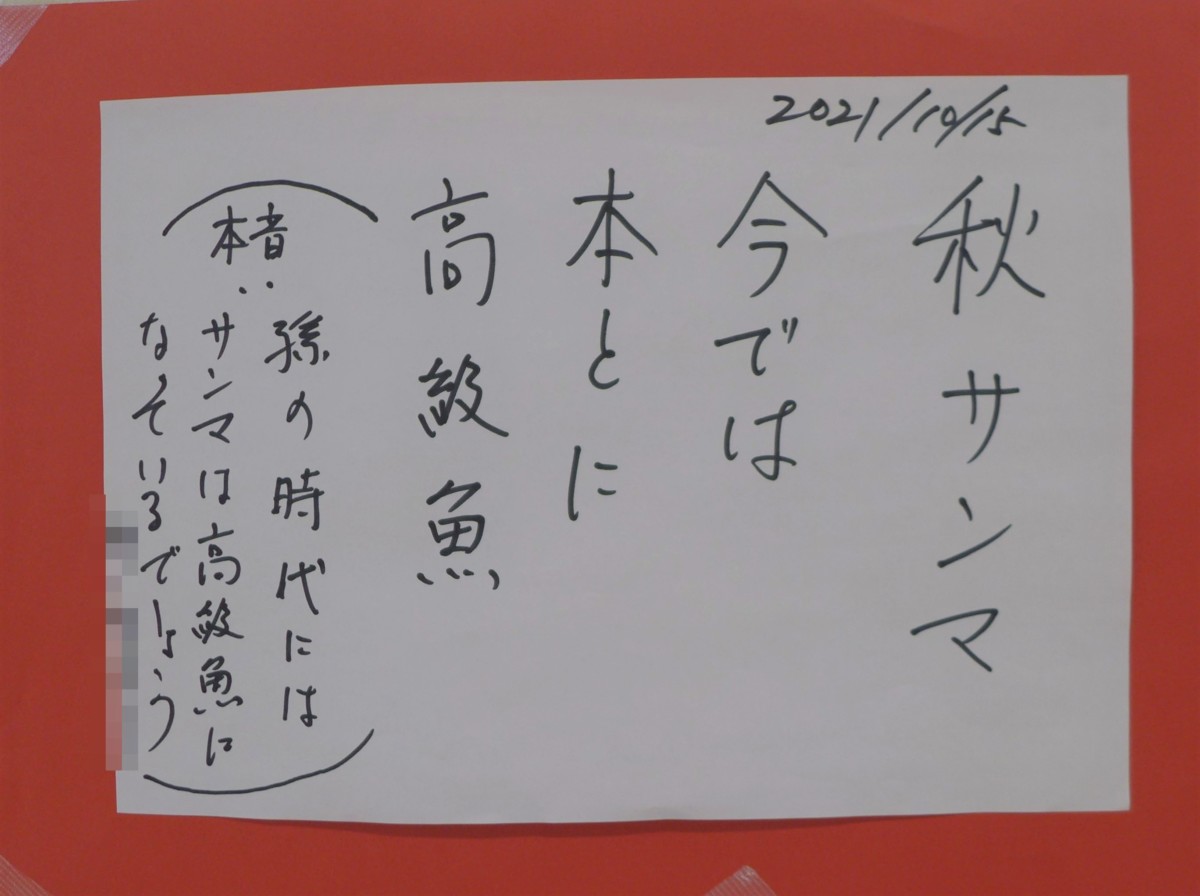 2021/10/15
秋サンマ
今では
本とに
高級魚
(本音‥
孫の時代には
サンマは高級魚に
なっているでしょう)